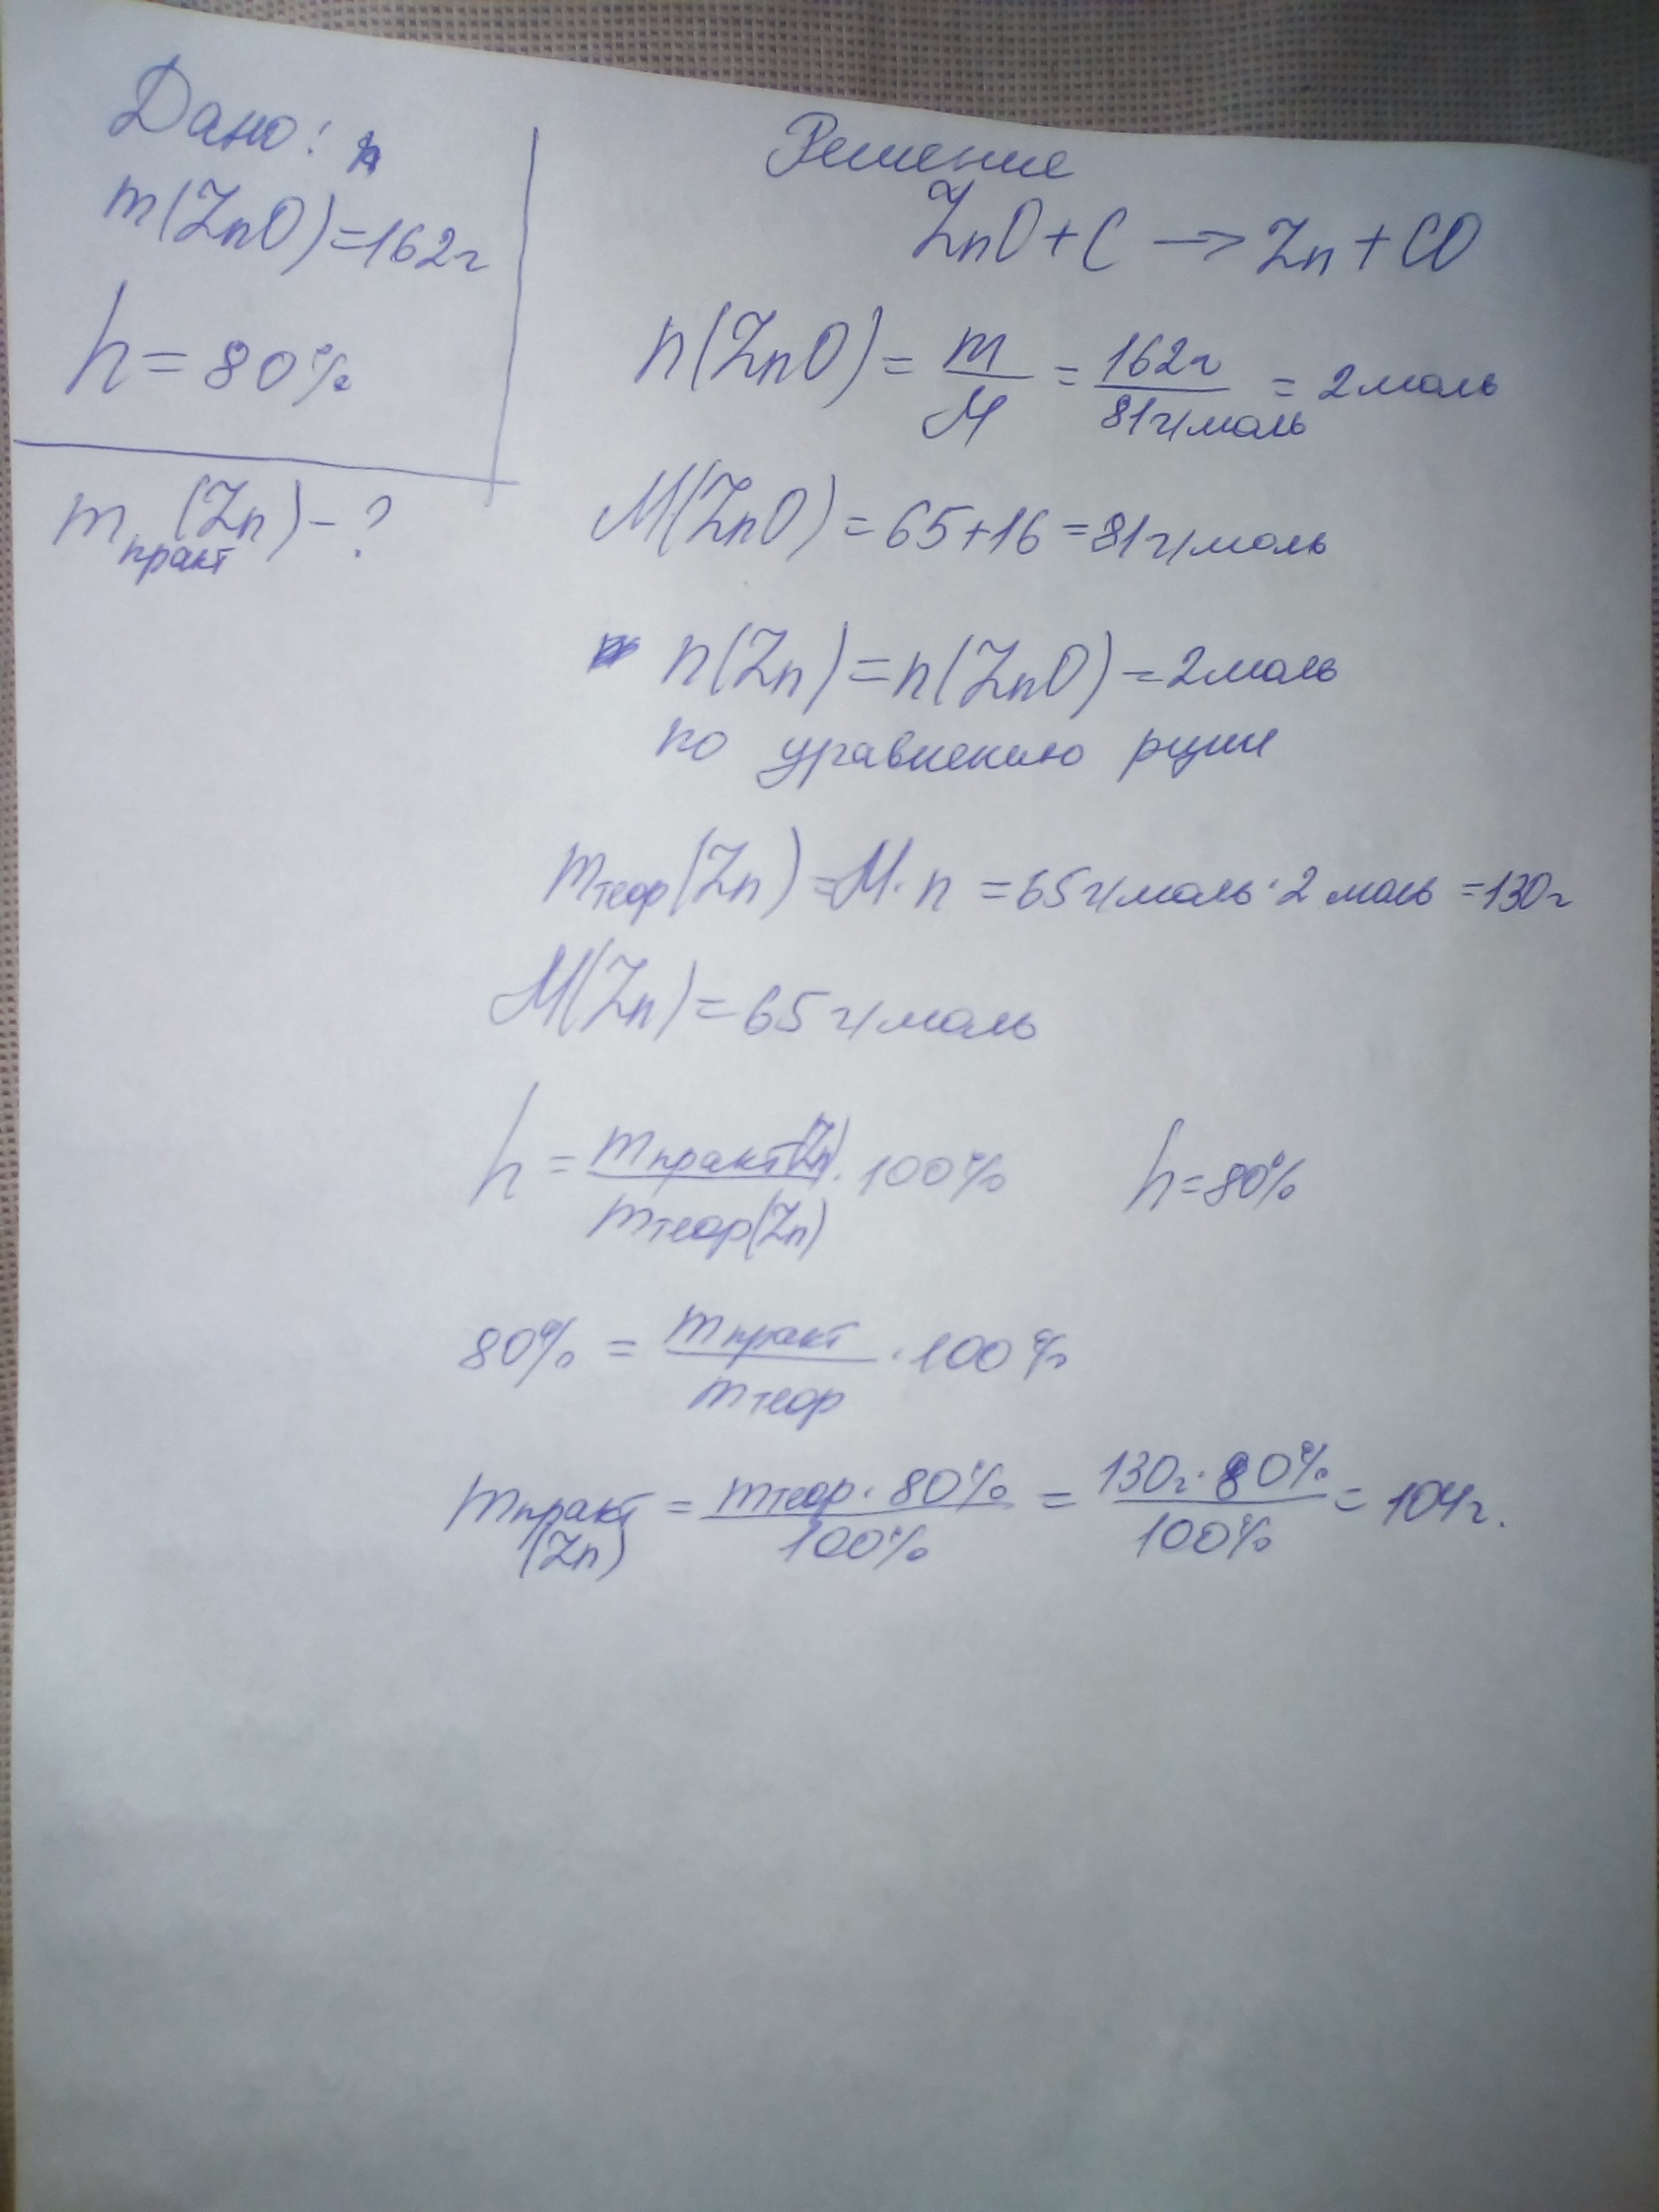 Дано:
m(ZnO)=162г
h=80%
m практ (Zn)-?
Решение
ZnO+C → Zn+CO
n(ZnO)= m/M = 162г/81г/моль = 2моль
M(ZnO)=65+16=81г/моль
n(Zn)=n(ZnO)=2моль
по уравнению рции
mтеор(Zn)=M·n=65г/моль·2 моль=130г
M(Zn)=65г/моль
h= mпракт(Zn)/mтеор(Zn)·100% h=80%
80% = mпракт/mтеор ·100%
mпракт (Zn) = mтеор·80%/100% = 130г·80%/100% = 104г.